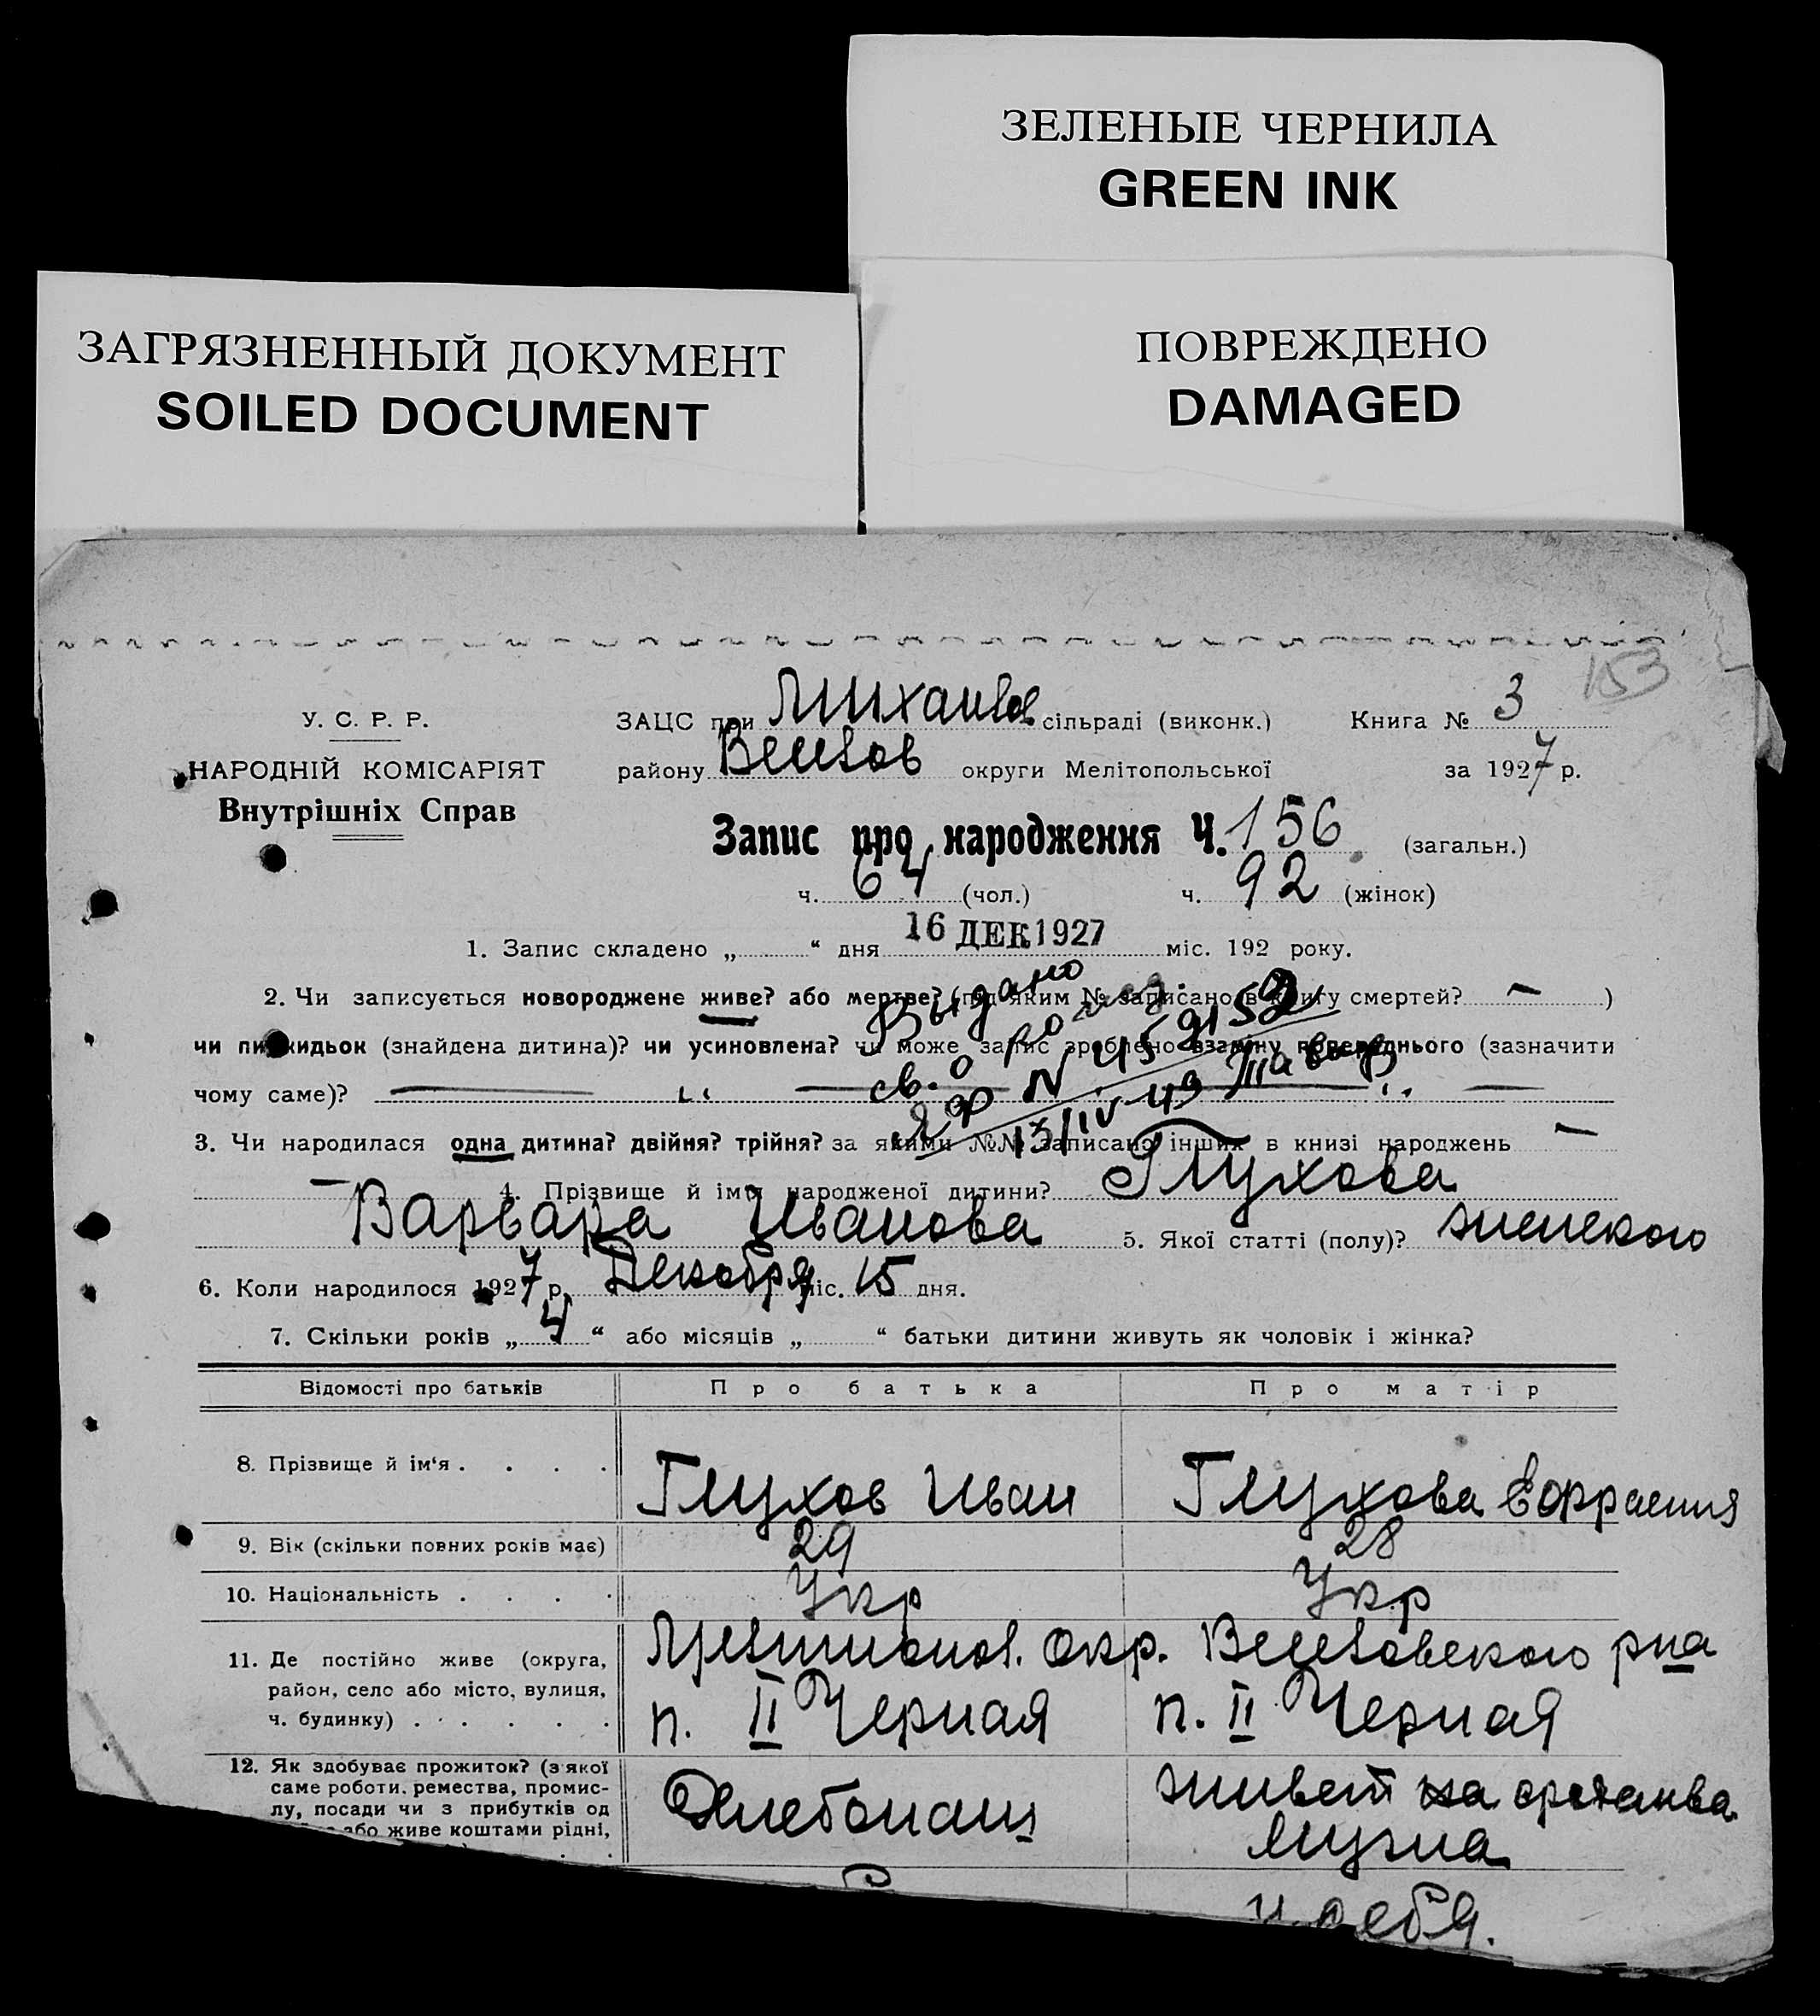 ЗЕЛЕНЫЕ ЧЕРНИЛА
GREEN INK
ЗАГРЯЗНЕННЫЙ ДОКУМЕНТ
SOILED DOCUMENT
ПОВРЕЖДЕНО
DAMAGED
153
У. С. Р. Р.
НАРОДНІЙ КОМІСАРІЯТ
Внутрішніх Справ
ЗАЦС при сільраді (виконк.) Книга № 3
району Веселов округи Мелітопольської за 1927 р.
Запис про народження Ч. 156 (загальн.)
ч. 64 (чол.) ч. 92 (жінок)
1. Запис складено „ “ дня 16 ДЕК 1927 міс. 192 року.
2. Чи записується новороджене живе? або мертве? (під яким № записано в книгу смертей? — )
чи підкидьок (знайдена дитина)? чи усиновлена? чи може запис зроблено взаміну попереднього (зазначити
чому саме)?
Выдано
св. о рожд.
ЯФ № 459152
13/IV-49
3. Чи народилася одна дитина? двійня? трійня? за якими №№ записано інших в книзі народжень —
— 4. Прізвище й імя народженої дитини? Глухова
Варвара Иванова 5. Якої статті (полу)? женского
6. Коли народилося 1927 р. Декабря міс. 15 дня.
7. Скільки років „ 4 “ або місяців „ “ батьки дитини живуть як чоловік і жінка?
Відомості про батьків Про батька Про матір
8. Прізвище й ім'я . . . . Глухов Иван Глухова Ефрасиния
9. Вік (скільки повних років має) 29 28
10. Національність . . . . Укр Укр
11. Де постійно живе (округа, район, село або місто, вулиця, ч. будинку) . . . . . окр. Веселовского рна
п. II Черная п. II Черная
12. Як здобуває прожиток? (з якої
саме роботи, ремества, промис-
лу, посади чи з прибутків од
або живе коштами рідні,
Хлебопаш
живет на средства
мужа